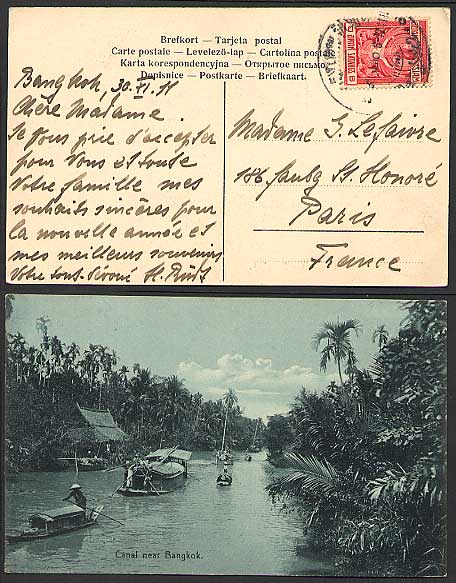 Brefkort — Tarjeta postal
Carte postale — Levelező-lap — Cartolina postale
Karta korespondencyjna — Открытое письмо
Dopisnice — Postkarte — Briefkaart.
Bangkok, 30. XI. 11
Chère Madame.
Je Vous prie d'accepter
pour Vous et toute
Votre famille mes
souhaits sincères pour
la nouvelle année et
mes meilleurs souvenirs
Votre tout-dévoué
Madame G. Lefaivre
186. faubg St. Honoré
Paris
France
Canal near Bangkok.